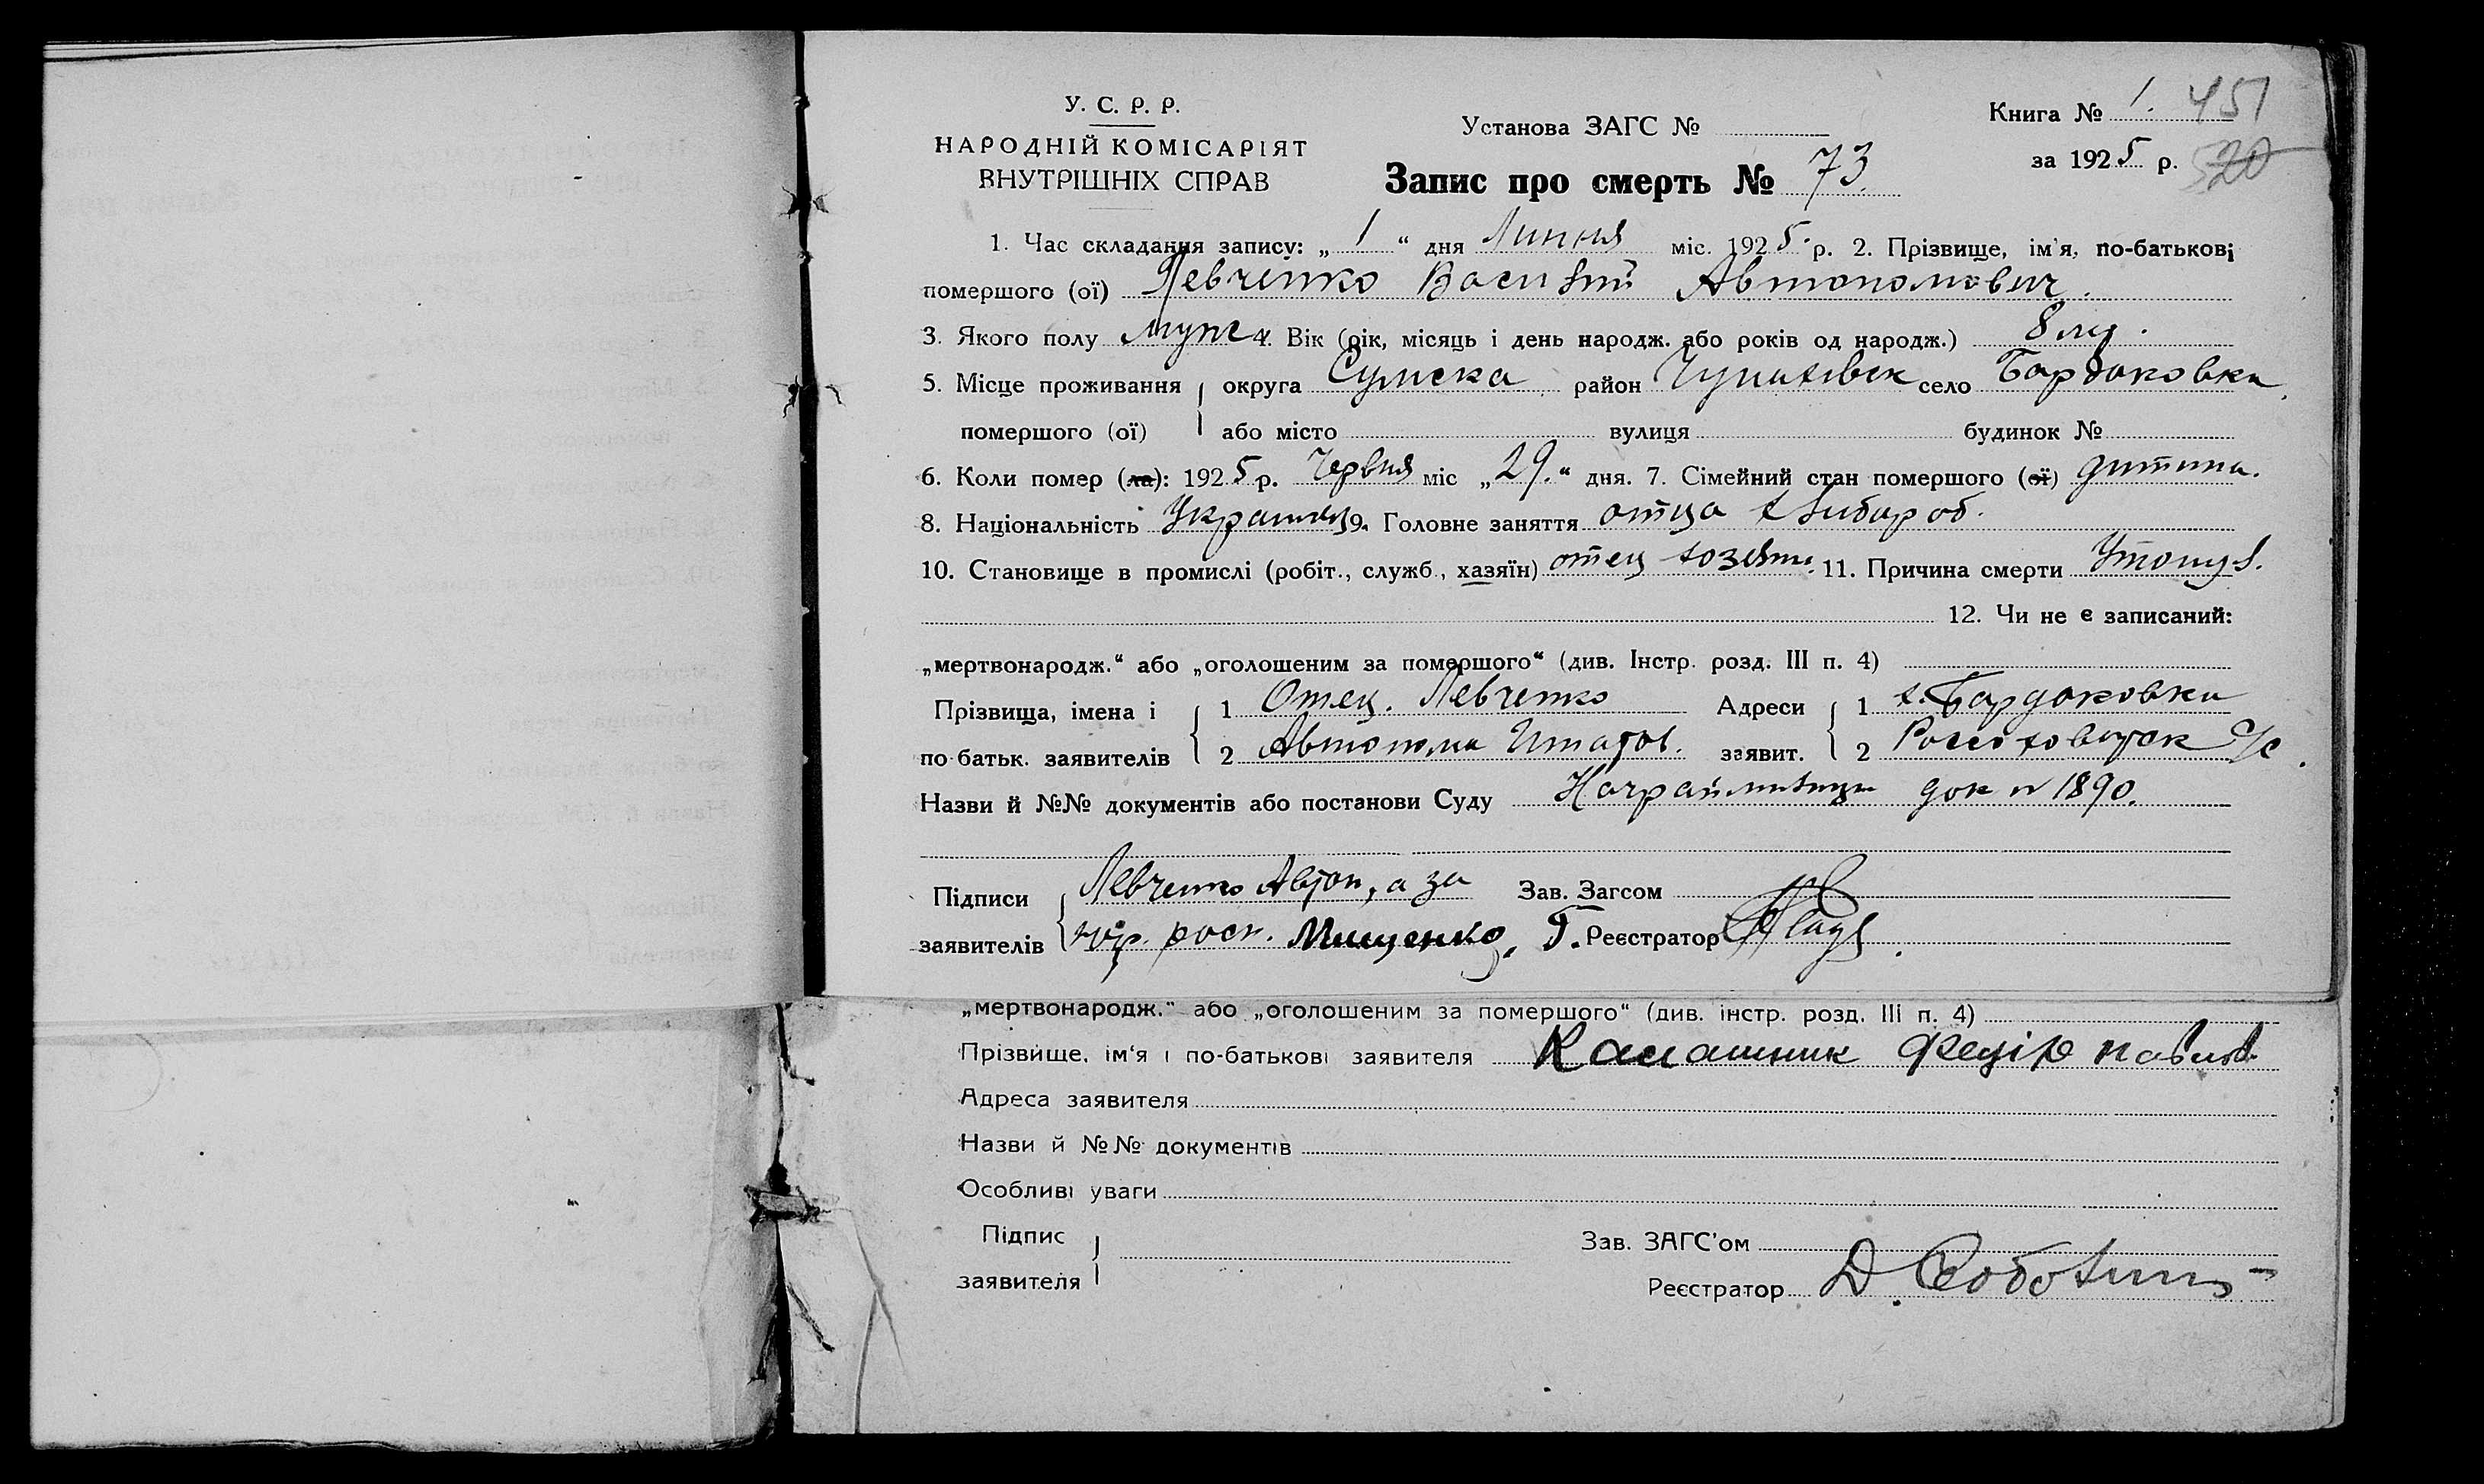 У. С. Р. Р.
НАРОДНІЙ КОМІСАРІЯТ
ВНУТРІШНІХ СПРАВ
Установа ЗАГС №
Запис про смерть № 73.
Книга № 1. 451
за 1925 р. 520
1. Час складання запису: „ 1 “ дня Липня міс. 1925 р. 2. Прізвище, ім'я, по-батькові
помершого (ої) Левченко Василий Автономович.
3. Якого полу муж 4. Вік (рік, місяць і день народж. або років од народж.) 8
5. Місце проживання округа Сумска район село Бардаковка
помершого (ої) або місто вулиця будинок №
6. Коли помер (ла): 1925 р. Червня міс „29.“ дня. 7. Сімейний стан помершого (ої) дитина.
8. Національність 9. Головне заняття отца хлибороб.
10. Становище в промислі (робіт., служб., хазяїн) отец 11. Причина смерти Утонув.
12. Чи не є записаний:
„мертвонародж.“ або „оголошеним за помершого“ (див. Інстр. розд. III п. 4)
Прізвища, імена і 1 Отец. Левченко Адреси 1 х. Бардаковка
по-батьк. заявителів 2 Автоном заявит. 2 С/с.
Назви й №№ документів або постанови Суду док № 1890.
Підписи Левченко Автон, а за Зав. Загсом
заявителів росп. Мищенко, Реєстратор
„мертвонародж.“ або „оголошеним за помершого“ (див. інстр. розд. III п. 4)
Прізвище, ім'я і по-батькові заявителя Калашник Федір Павлов.
Адреса заявителя
Назви й №№ документів
Особливі уваги
Підпис
заявителя
Зав. ЗАГС'ом
Реєстратор Д.